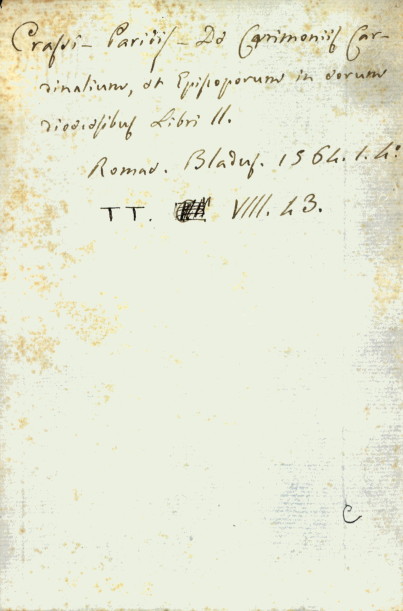 Crassi - Paridis - De Cærimoniis Car-
dinalium, et Episcoporum in eorum
dioecesibus Libri II.
Romae. Bladus. 1564. 1. 4º
TT. VIII. 43.
C